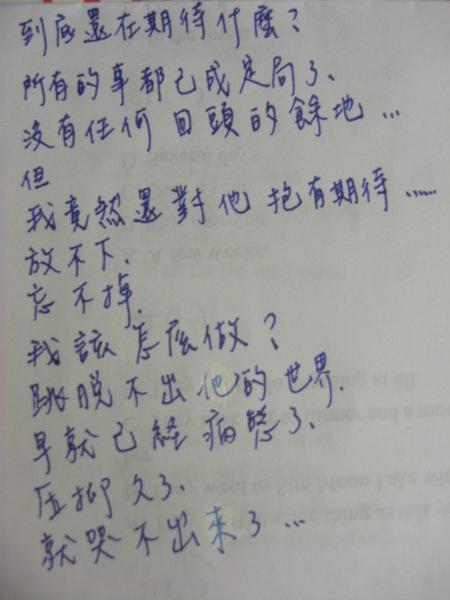 到底還在期待什麼?
所有的事都已成定局了、
沒有任何回頭的餘地...
但
我竟然還對他抱有期待......
放不下、
忘不掉.
我該怎么做?
跳脫不出他的世界.
早就已經痛慘了、
压抑久了、
就哭不出來了...